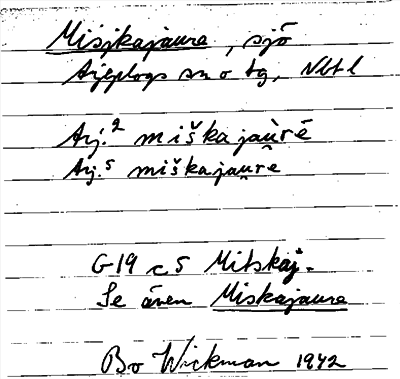 Misjkajaure, sjö
Arjeplogs sn o tg, Nbtl
Arj.² miškajau̯rē
Arj.⁵ miškajau̯rē
G19 c 5 Mitskaj.
Se även Miskajaure
Bo Wickman 1942